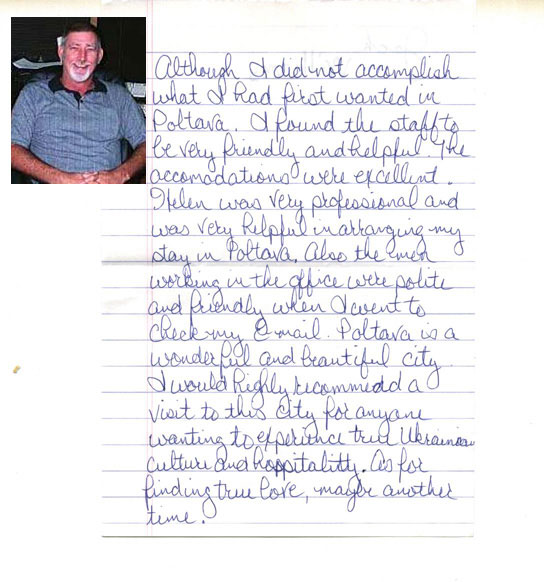 Although I did not accomplish
what I had first wanted in
Poltava. I found the staff to
be very friendly and helpful. The
accomodations were excellent.
Helen was very professional and
was very helpful in arranging my
stay in Poltava. Also the men
working in the office were polite
and friendly when I went to
check my E-mail. Poltava is a
wonderful and beautiful city
I would highly recommedd a
visit to this city for anyone
wanting to experience true Ukrainian
culture and hospitality. As for
finding true love, maybe another
time.